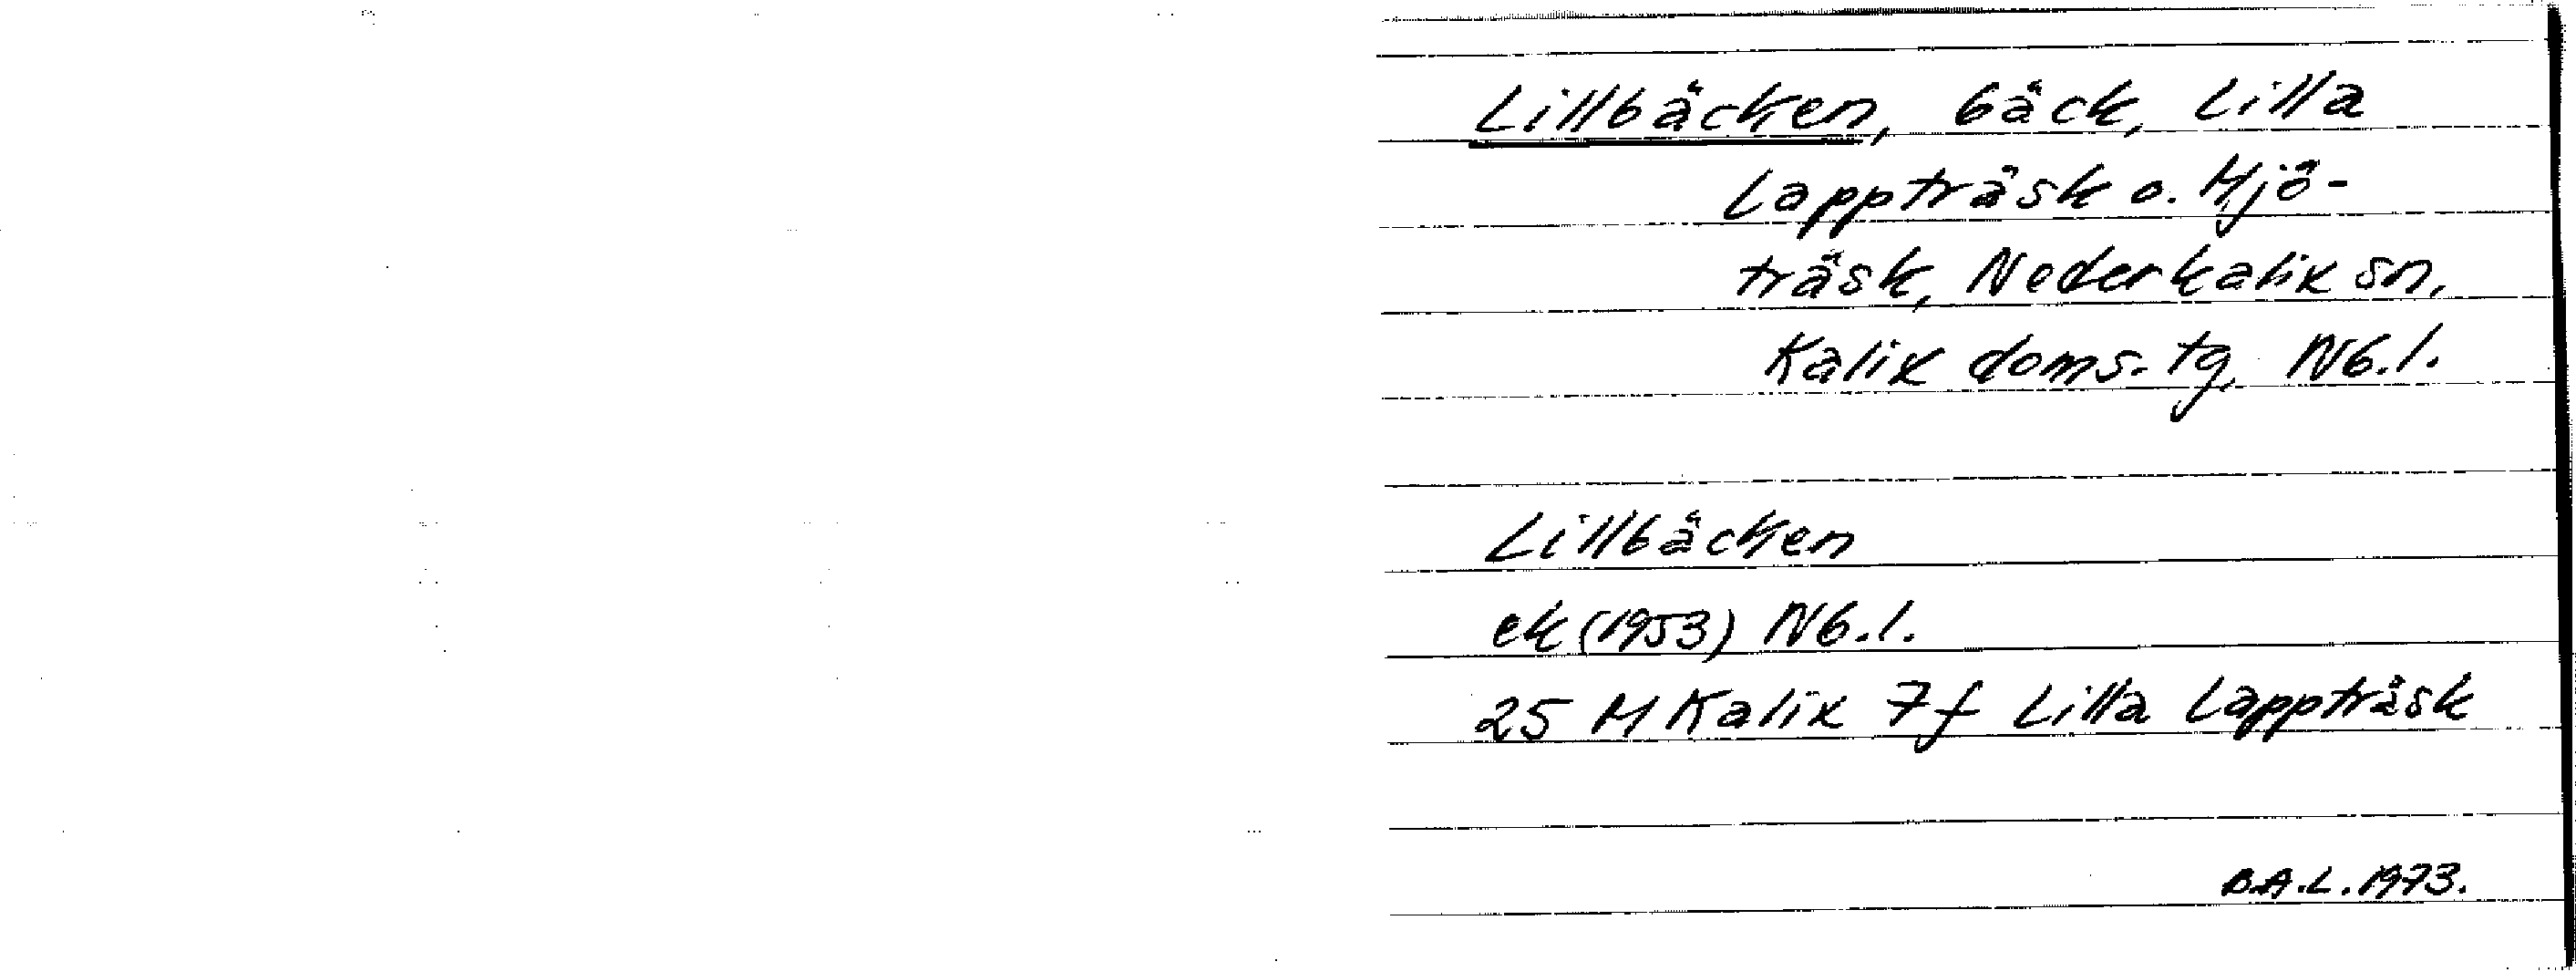 Lillbäcken, bäck, Lilla
Lappträsk o. Mjö-
träsk, Nederkalix sn,
Kalix doms-tg, Nb.l.
Lillbäcken
ek (1953) Nb.l.
25 M Kalix 7f Lilla Lappträsk
B.A.L. 1973.